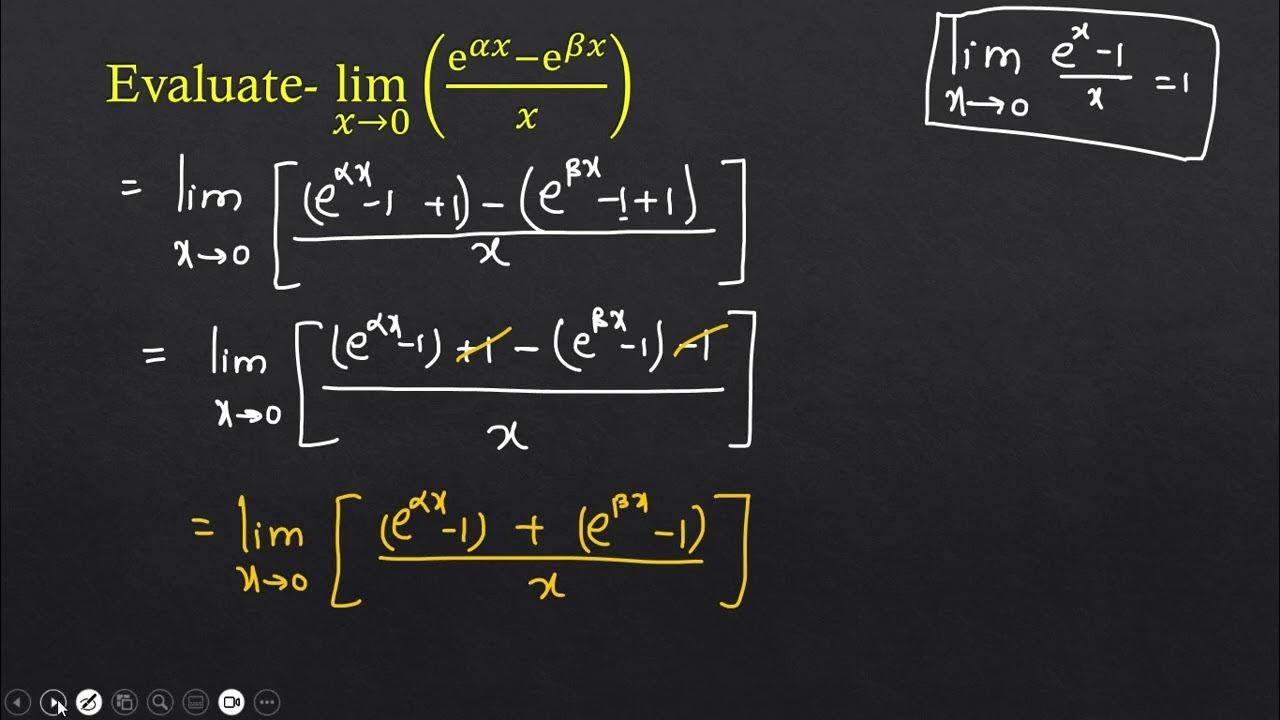 Evaluate- lim x→0 ((e^αx − e^βx)/x)
lim x→0 (e^x − 1)/x = 1
= lim x→0 [((e^αx − 1 + 1) − (e^βx − 1 + 1))/x]
= lim x→0 [((e^αx − 1) + 1 − (e^βx − 1) − 1)/x]
= lim x→0 [((e^αx − 1) + (e^βx − 1))/x]